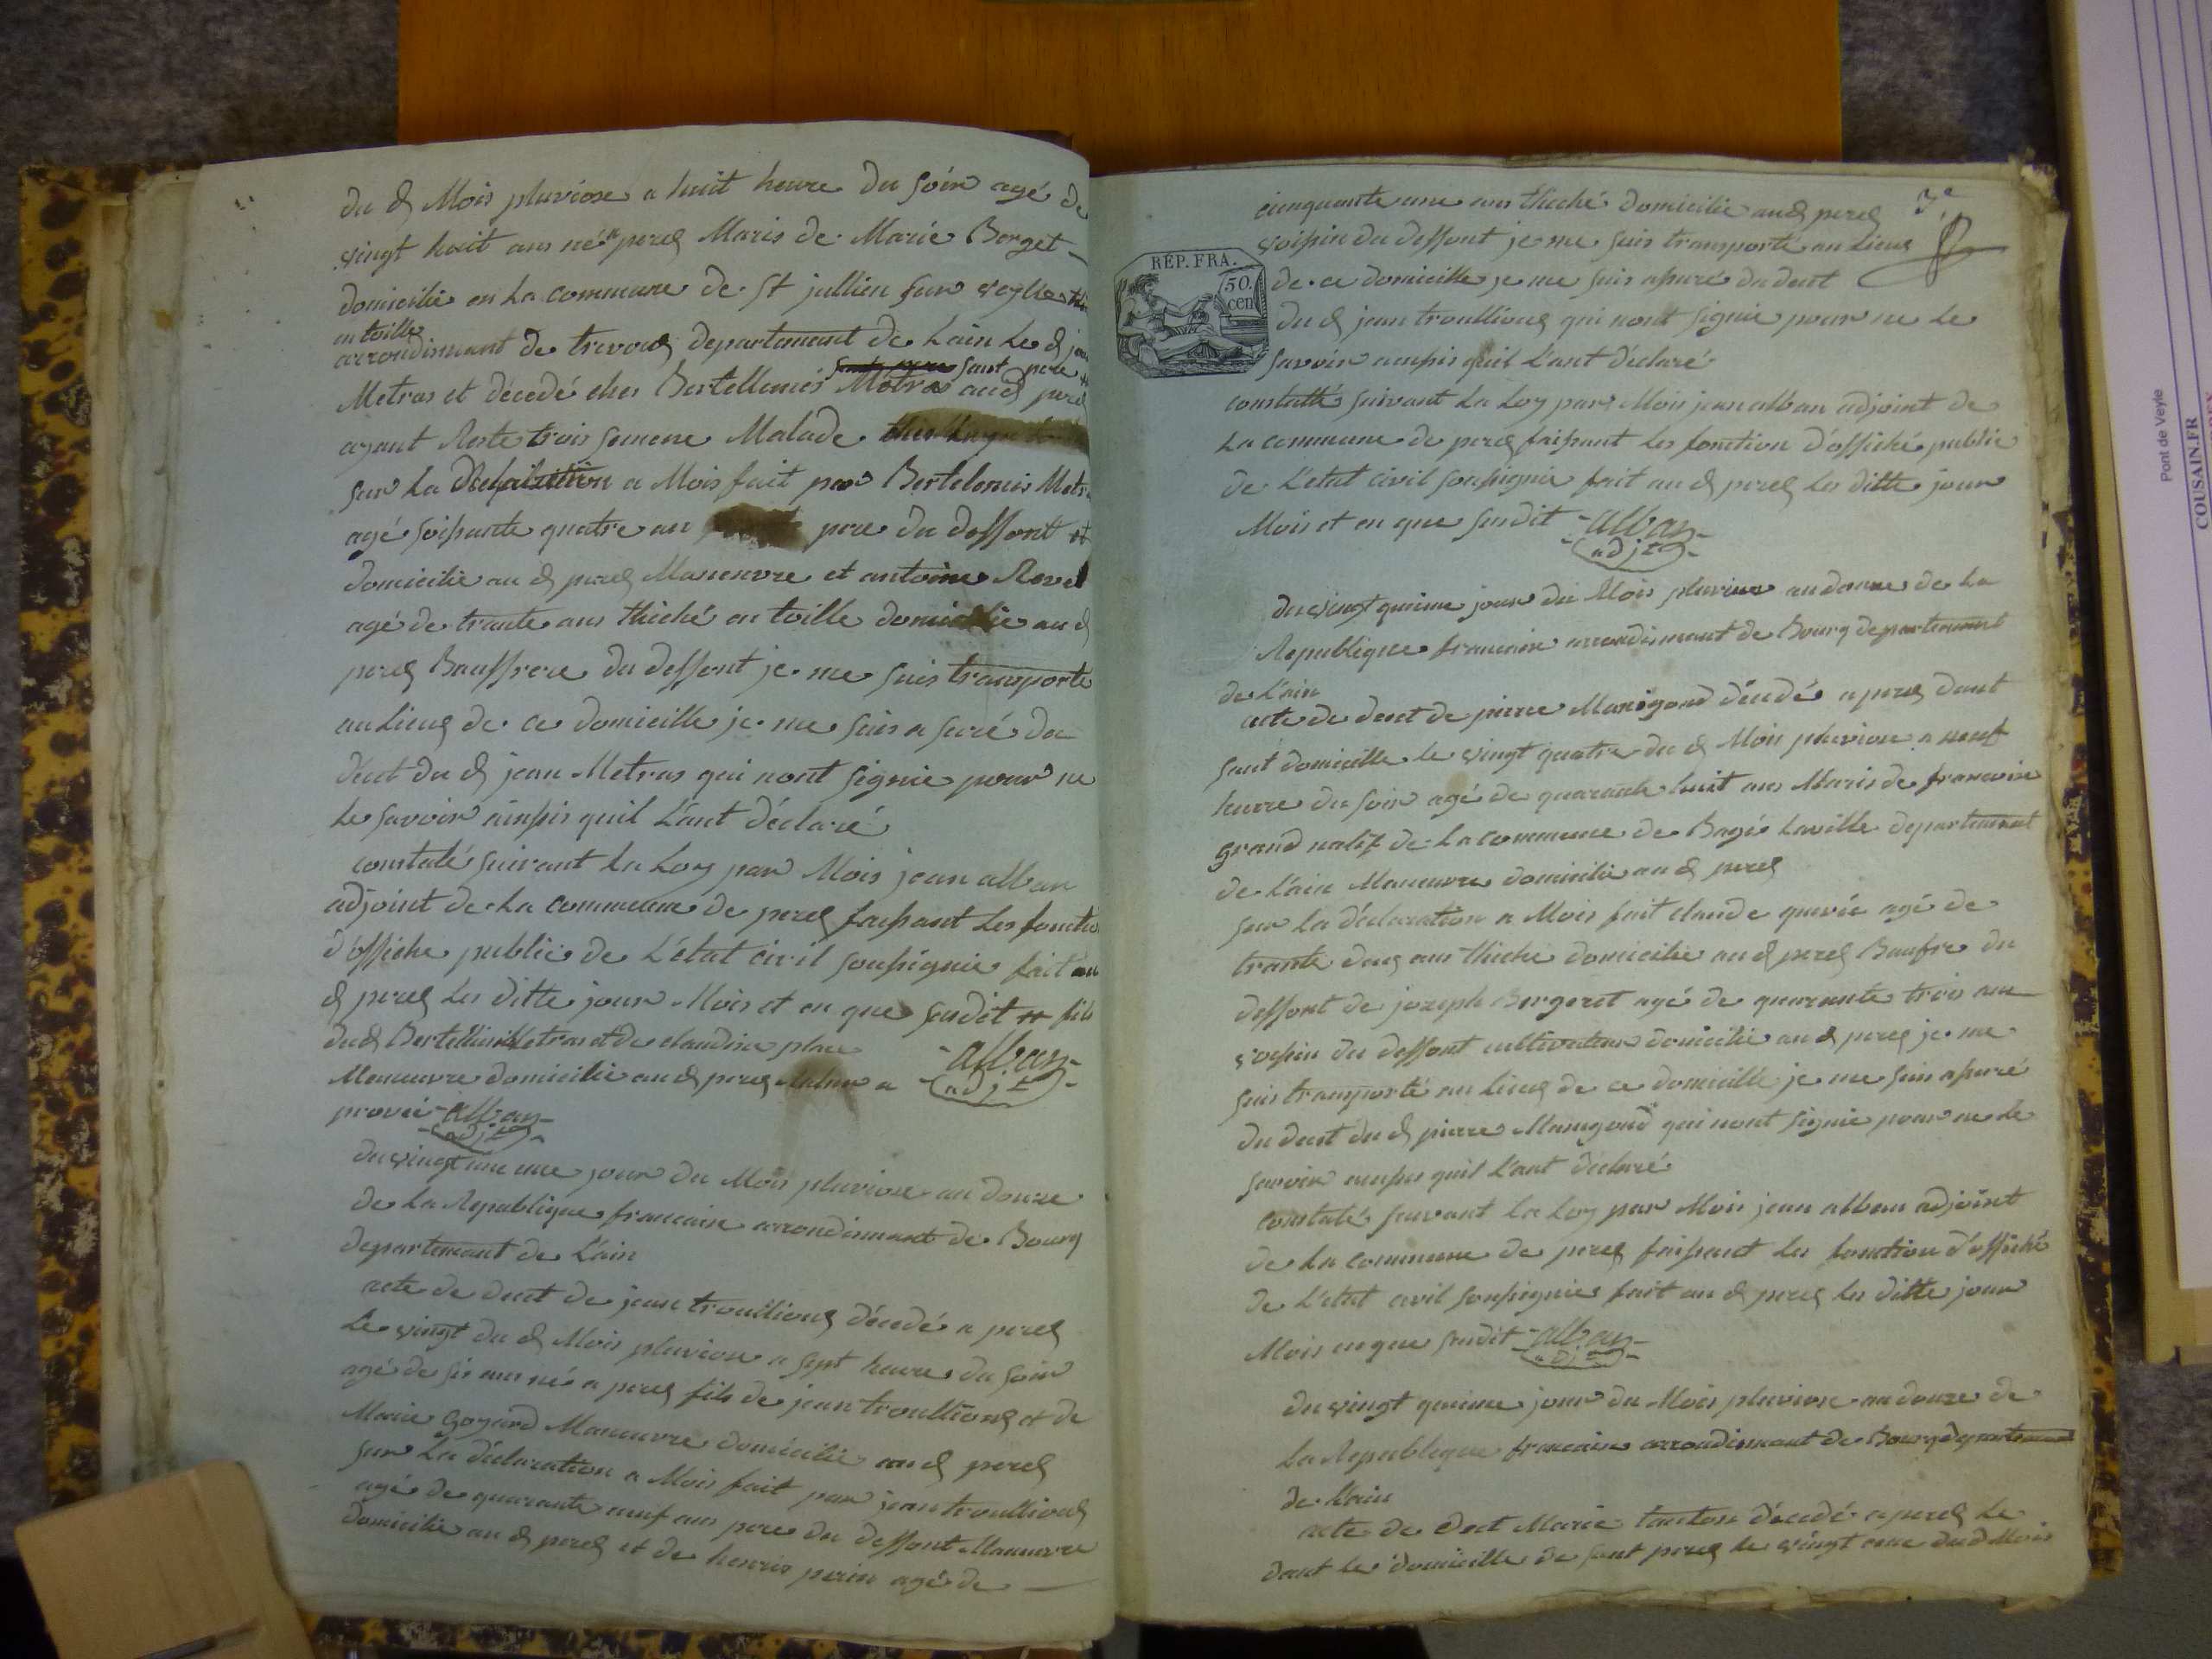 du d Mois pluviose a huit heure du soir agé de
vingt huit ans né a perex Maris de Marie Borget
domicilié en La commune de St jullien sur veylle
en toille
arrondismant de trevoux departemant de Lain Le d jean
sant pere
Metras et décedé ches Bertellemés Métras aud perex
ayant Reste trois semene Malade
sur La Déclaration a Mois fait par Bertelemis Metras
agé soissante quatre an pere du deffont et
domicilié au d perex Maneuvre et antoine Revel
agé de trante ans thiché en toille domicilie au d
perex Bauffrere du deffont je me suis transporte
au Lieux de ce domicille je me suis asuré du
déect du d jean Metras qui nont signie pour ne
Le savoir ainssis quil L'ant déclaré
constaté suivant La Loy par Mois jean alban
adjoint de La commune de perex faissant Les fonction
d'offiche public de L'état civil soussignie fait au
d perex Les ditte jour Mois et en que sudit fils
du d Bertellemis Metras et de claudine place
Maneuvre domicilié au d perex a
prové alban
adjt
alban
adjt
du vingt une me jour du Mois pluviose an douze
de La Republique francaise arrondismant de Bourg
departemant de L'ain
acte de deect de jean troullioux décedé a perex
Le vingt du d Mois pluviose a sept heure du soir
agé de sis ans né a perex fils de jean troullioux et de
Marie Goyard Maneuvre domicilié au d perex
sur La déclaration a Mois fait par jean troullioux
agé de quarante neuf ans pere du deffont Maneuvre
domicilie au d perex et de henris perin agé de
3e
cinquante une ans thiché domicilie au d perex
voissin du deffont je me suis transporte au Lieux
REP. FRA.
50.
cen
de ce domicille je me suis assuré du deect
du d jean troullioux qui nont signie pour ne Le
savoir ainssis quil L'ant déclaré
constatté suivant La Loy par Mois jean alban adjoint de
La commune de perex faissant Les fonction d'offiché public
de L'etat civil soussignie fait au d perex Les ditte jour
Mois et en que sudit alban
adjt
du vingt quinme jour du Mois pluviose an douze de La
Republique francaise arrondismant de Bourg departemant
de L'ain
acte de deect de pierre Marigond décedé a perex dant
sant domicille le vingt quatre du d Mois pluviose a neuf
heurre du soir agé de quarante huit ans Maris de francoise
grand natif de La commune de Bagé Laville departemant
de L'ain Maneuvre domicilié au d perex
sur la déclaration a Mois fait claude quevée agé de
trante deux ans thiche domicilie au d perex Baufre du
deffont de jozeph Bergeret agé de quarante trois ans
voissin du deffont cultivateur domicilie au d perex je me
suis transporté au Lieux de ce domicille je me suis assuré
du deect du d pierre Marigond qui nont signie pour ne Le
savoir ainssis quil L'ant déclaré
constaté suivant La Loy par Mois jean alban adjoint
de La commune de perex faissant Les fonction d'offiché
de L'etat civil soussignie fait au d perex Les ditte jour
Mois en que sudit alban
adjt
du vingt quinme jour du Mois pluviose an douze de
La Republique francaise arrondismant de Bourg departemant
de L'ain
acte de deect Marie tanton décedé a perex Le
dant le domicille de sant perex le vingt du d Mois
Pont de Veyle
COUSAIN.FR